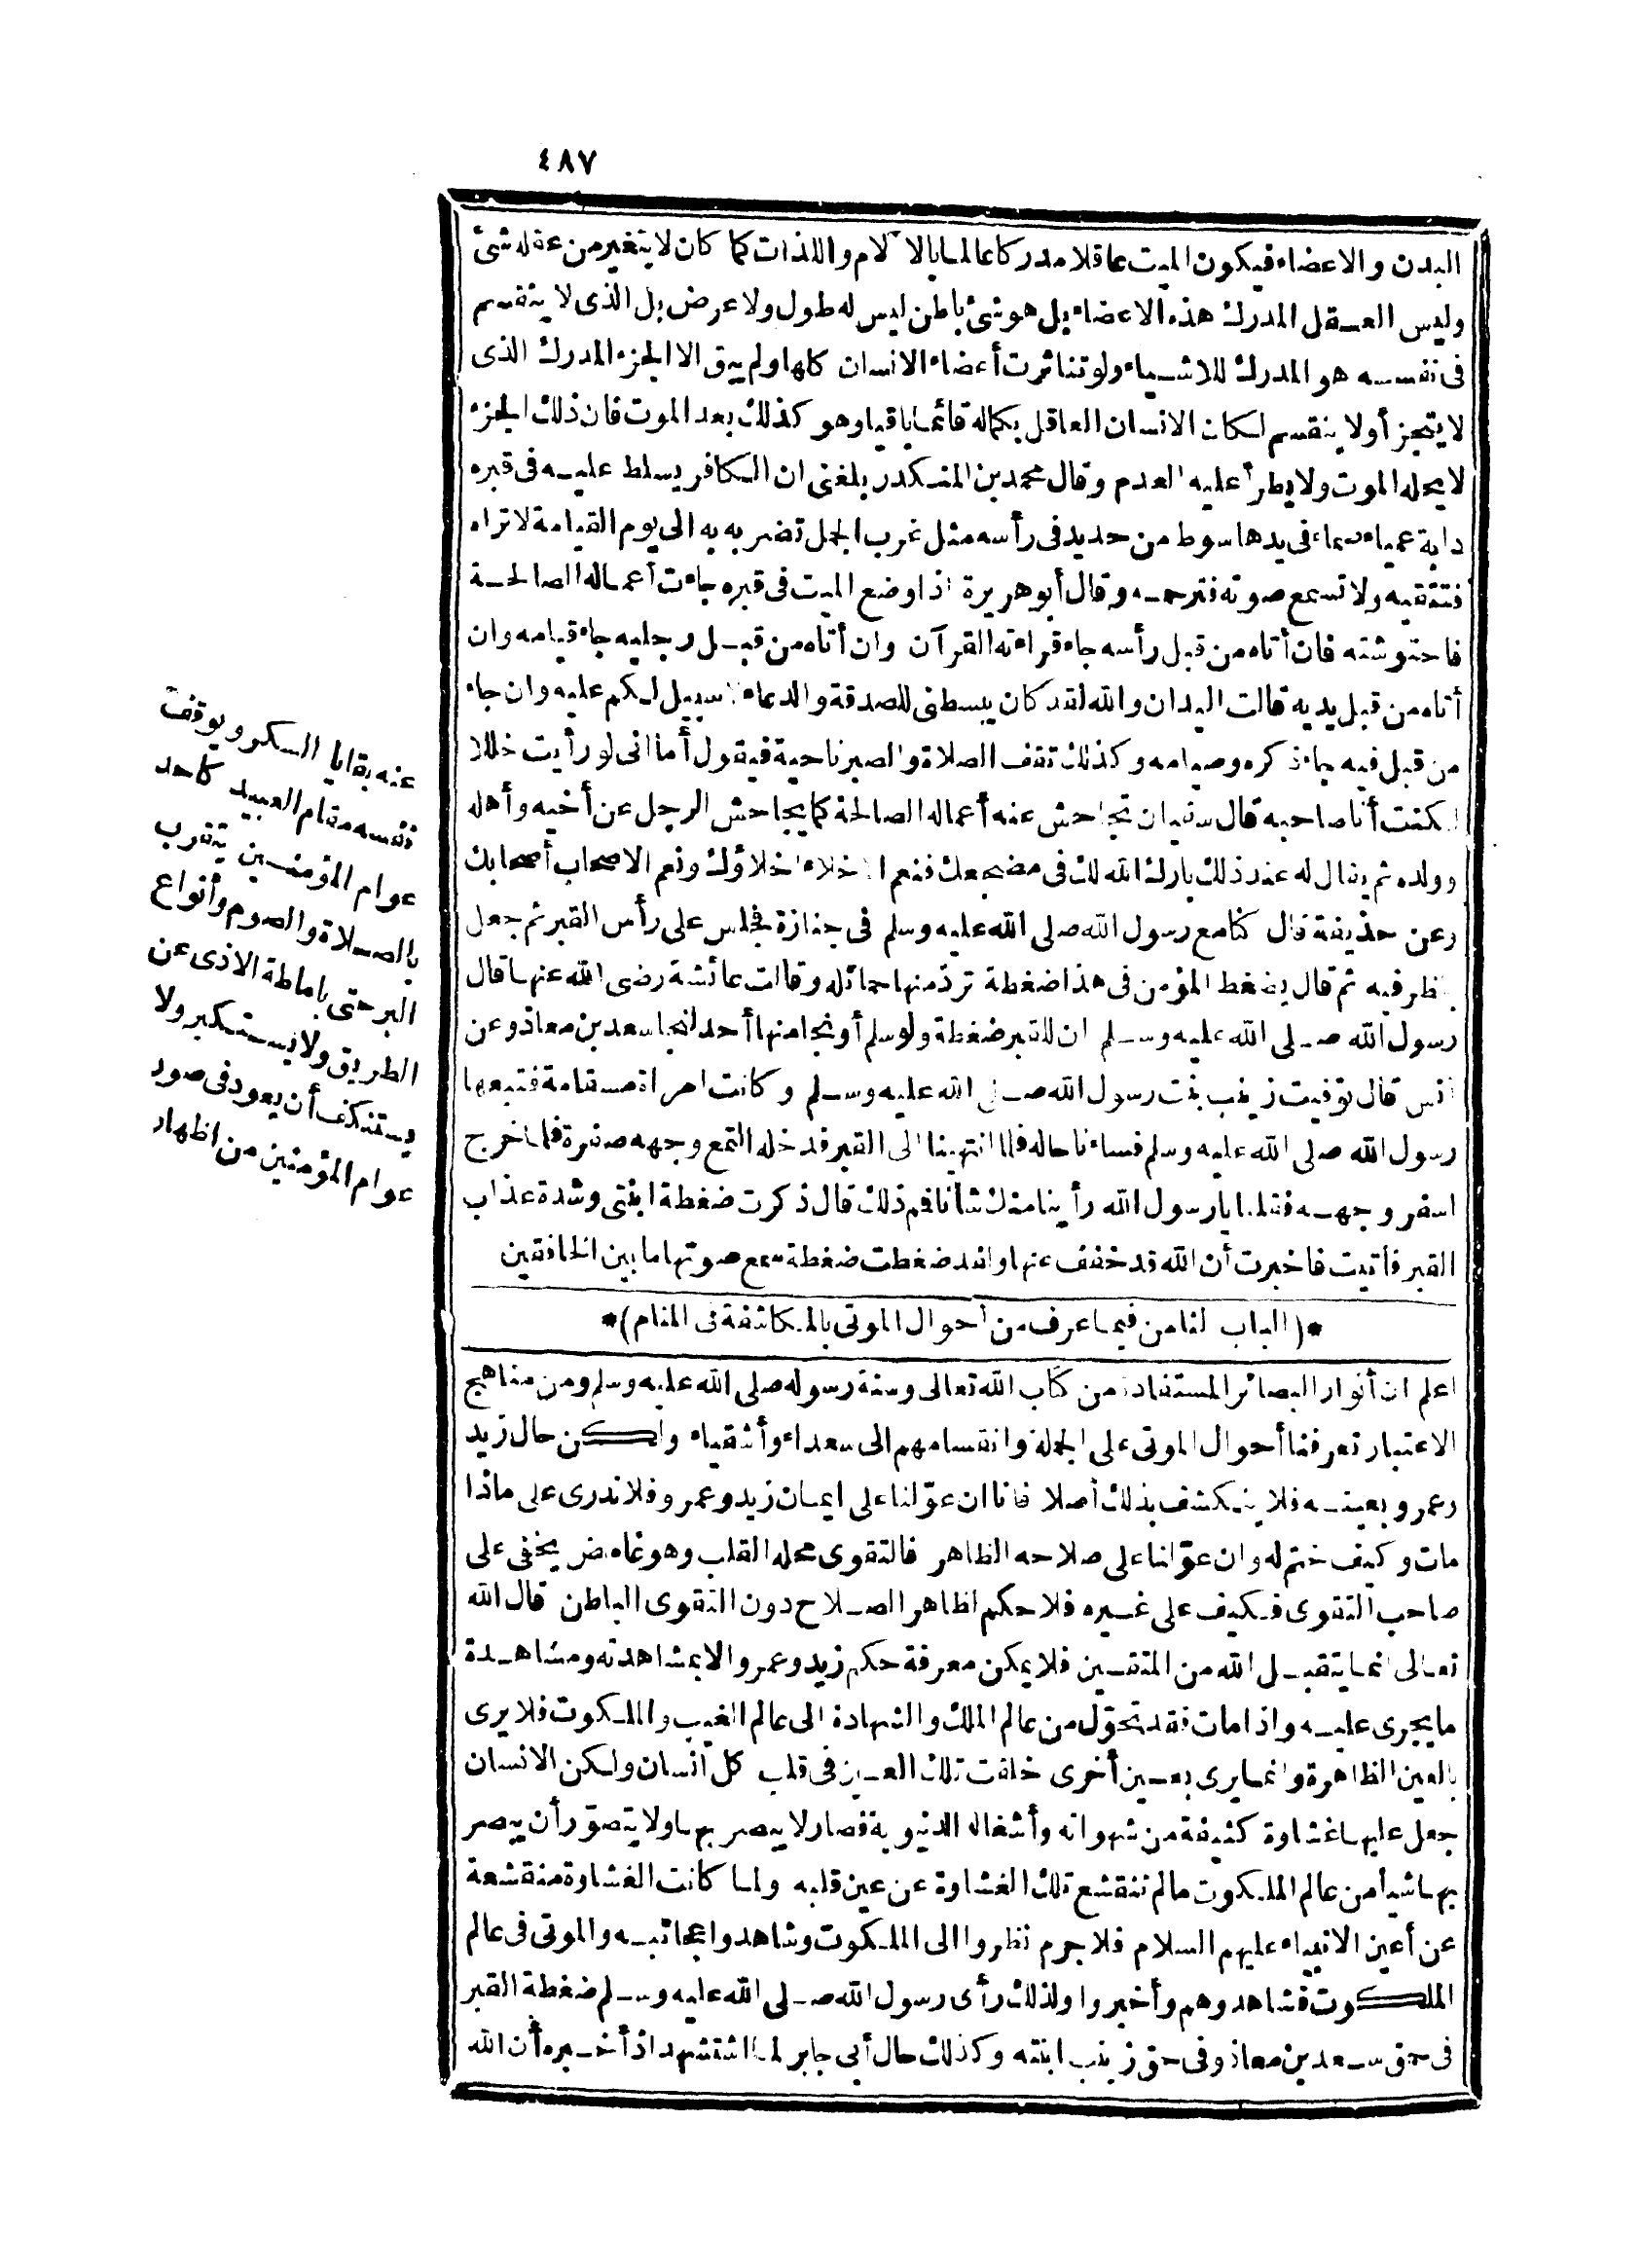 ٤٨٧
البدن والاعضاء فيكون الميت عاقلا مدركا عالما بالآلام واللذات كما كان لا يتغير من عقله شئ
وليس العقل المدرك هذه الاعضاء بل هو شئ باطن ليس له طول ولا عرض بل الذى لا ينقسم
فى نفسه هو المدرك للاشياء ولو تناثرت أعضاء الانسان كلها ولم يبق الا الجزء المدرك الذى
لا يتجزأ ولا ينقسم لكان الانسان العاقل بكماله قائما باقيا وهو كذلك بعد الموت فان ذلك الجزء
لا يحله الموت ولا يطرأ عليه العدم وقال محمد بن المنكدر بلغنى ان الكافر يسلط عليه فى قبره
دابة عمياء صماء فى يدها سوط من حديد فى رأسه مثل غرب الجمل تضربه به الى يوم القيامة لا تراه
فتتقيه ولا تسمع صوته فترحمه وقال أبو هريرة اذا وضع الميت فى قبره جاءت أعماله الصالحة
فاحتوشته فان أتاه من قبل رأسه جاء قراءته القرآن وان أتاه من قبل رجليه جاء قيامه وان
أتاه من قبل يديه قالت اليدان والله لقد كان يبسطنى للصدقة والدعاء لا سبيل لكم عليه وان جاء
من قبل فيه جاء ذكره وصيامه وكذلك تقف الصلاة والصبر ناحية فيقول أما انى لو رأيت خللا
لكنت أنا صاحبه قال سفيان تجاحش عنه أعماله الصالحة كما يجاحش الرجل عن أخيه وأهله
وولده ثم يقال له عند ذلك بارك الله لك فى مضجعك فنعم الاخلاء اخلاؤك ونعم الاصحاب أصحابك
وعن حذيفة قال كنا مع رسول الله صلى الله عليه وسلم فى جنازة فجلس على رأس القبر ثم جعل
ينظر فيه ثم قال يضغط المؤمن فى هذا ضغطة ترد منها حمائله وقالت عائشة رضى الله عنها قال
رسول الله صلى الله عليه وسلم ان للقبر ضغطة ولو سلم أو نجا منها أحد لنجا سعد بن معاذ وعن
انس قال توفيت زينب بنت رسول الله صلى الله عليه وسلم وكانت امرأة مسقامة فتبعها
رسول الله صلى الله عليه وسلم فساءنا حاله فلما انتهينا الى القبر فدخله التمع وجهه صفرة فلما خرج
اسفر وجهه فقلنا يا رسول الله رأينا منك شأنا فمم ذلك قال ذكرت ضغطة ابنتى وشدة عذاب
القبر فأتيت فاخبرت أن الله قد خفف عنها ولقد ضغطت ضغطة سمع صوتها ما بين الخافقين
*(الباب الثامن فيما عرف من أحوال الموتى بالمكاشفة فى المنام)*
اعلم ان أنوار البصائر المستفادة من كتاب الله تعالى وسنة رسوله صلى الله عليه وسلم ومن مناهج
الاعتبار تعرفنا أحوال الموتى على الجملة وانقسامهم الى سعداء وأشقياء ولكن حال زيد
وعمرو بعينه فلا ينكشف بذلك أصلا فانا ان عوّلنا على ايمان زيد وعمرو فلا ندرى على ماذا
مات وكيف ختم له وان عوّلنا على صلاحه الظاهر فالتقوى محله القلب وهو غامض يخفى على
صاحب التقوى فكيف على غيره فلا حكم لظاهر الصلاح دون التقوى الباطن قال الله
تعالى انما يتقبل الله من المتقين فلا يمكن معرفة حكم زيد وعمرو الا بمشاهدته ومشاهدة
ما يجرى عليه واذا مات فقد تحوّل من عالم الملك والشهادة الى عالم الغيب والملكوت فلا يرى
بالعين الظاهرة وانما يرى بعين أخرى خلقت تلك العين فى قلب كل انسان ولكن الانسان
جعل عليها غشاوة كثيفة من شهواته وأشغاله الدنيوية فصار لا يبصر بها ولا يتصوّر أن يبصر
بها شيأ من عالم الملكوت ما لم تنقشع تلك الغشاوة عن عين قلبه ولما كانت الغشاوة منقشعة
عن أعين الانبياء عليهم السلام فلا جرم نظروا الى الملكوت وشاهدوا عجائبه والموتى فى عالم
الملكوت فشاهدوهم وأخبروا ولذلك رأى رسول الله صلى الله عليه وسلم ضغطة القبر
فى حق سعد بن معاذ وفى حق زينب ابنته وكذلك حال أبى جابر لما استشهد اذ أخبره أن الله
عنه بقايا السكر ويوقف
نفسه مقام العبيد كاحد
عوام المؤمنين يتقرب
بالصلاة والصوم وأنواع
البر حتى باماطة الاذى عن
الطريق ولا يستكبر ولا
يستنكف أن يعود فى صور
عوام المؤمنين من اظهار